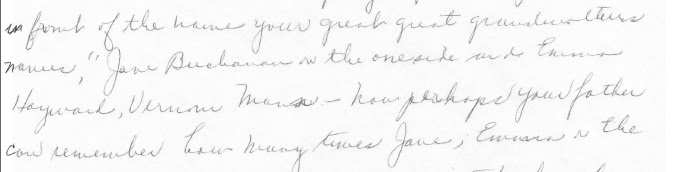 in front of the name your great great grandmothers
names," Jane Buchanan on the one side and Emma
Hayward, Vernon Mann - now perhaps your father
can remember how many times Jane, Emma n the